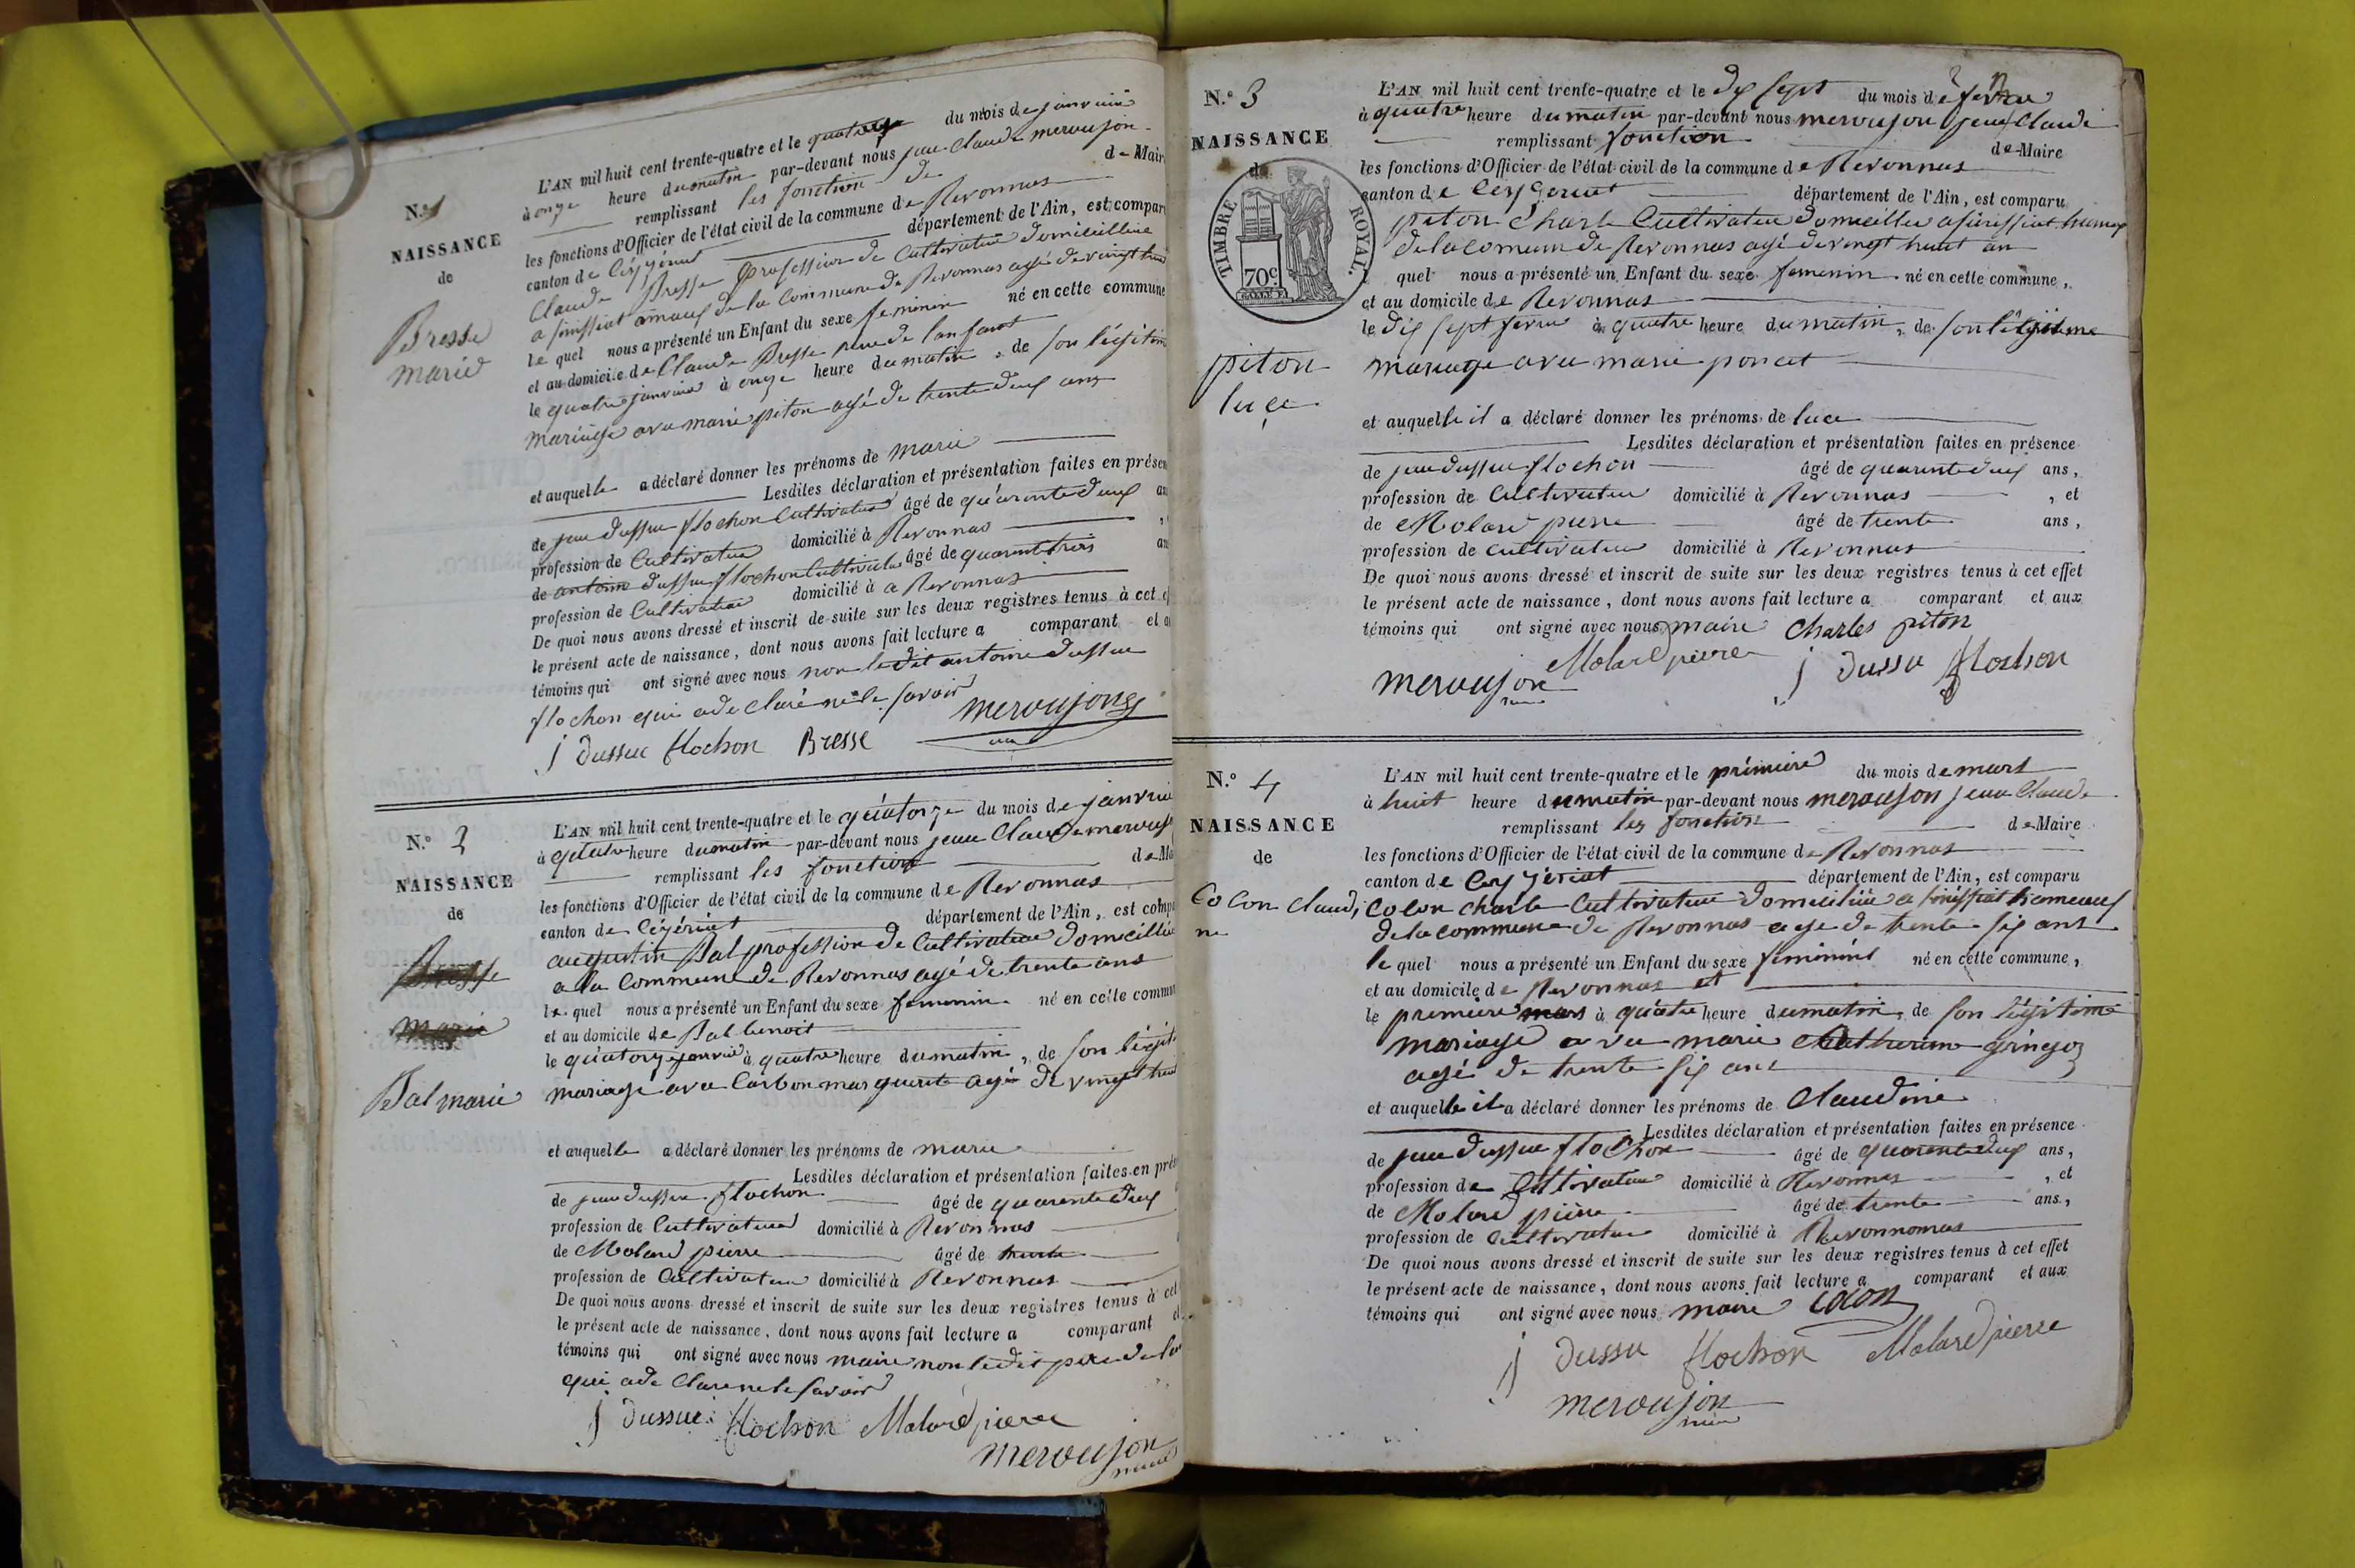 N.º 1
NAISSANCE
de
Bresse
marie
L'AN mil huit cent trente-quatre et le du mois de janvier
à onze heure du matin par-devant nous jean Claude merousion
remplissant les fonction de de Mair
les fonctions d'Officier de l'état civil de la commune de Revonnas
canton de département de l'Ain, est compar
Claude Bresse profession de Cultivateur
de la Commune de Revonnas agé de vingt
le quel nous a présenté un Enfant du sexe feminin né en cette commune
et au domicile de Claude Bresse pere de
le quatre janvier à onze heure du matin, de son légitim
mariage avec marie piton agé de trente deux ans
et auquelle a déclaré donner les prénoms de marie
Lesdites déclaration et présentation faites en présen
de jean dussue flochon Cultivateur âgé de quarente deux an
profession de Cultivateur domicilié à Revonnas
de antoine dussue flochon Cultivateur âgé de quarent trois an
profession de Cultivateur domicilié à a Revonnas
De quoi nous avons dressé et inscrit de suite sur les deux registres tenus à cet ef
le présent acte de naissance, dont nous avons fait lecture a comparant et a
témoins qui ont signé avec nous non le dit antoine dussue
flochon qui a de claré ne le savoir
merousion
J Dussue flochon Bresse
N.º 2
NAISSANCE
de
Bresse
marie
Bal marie
L'AN mil huit cent trente-quatre et le quatorze du mois de janvie
à quatre heure du matin par-devant nous jean Claude
remplissant les fonction de Ma
les fonctions d'Officier de l'état civil de la commune de Revonnas
canton de Céyzériat département de l'Ain, est compa
augustin Bal profession de Cultivateur domicillié
a la Commune de Revonnas agé de trente ans
le quel nous a présenté un Enfant du sexe femenin né en cette commun
et au domicile de Bal benoit
le quatorze janvié à quatre heure du matin, de son légit
mariage avec marguerite agée de vingt
et auquelle a déclaré donner les prénoms de marie
Lesdites déclaration et présentation faites en prés
de jean dussue flochon âgé de quarente deux
profession de Cultivateur domicilié à Revonnas
de Molard pierre âgé de trente
profession de Cultivateur domicilié à Revonnas
De quoi nous avons dressé et inscrit de suite sur les deux registres tenus à cet
le présent acte de naissance, dont nous avons fait lecture a comparant et
témoins qui ont signé avec nous maire non le dit pere
qui a de claré ne le savoir
J Dussue flochon Molard pierre
merousion
N.º 3
NAISSANCE
de
TIMBRE ROYAL.
70c
piton
luce
L'AN mil huit cent trente-quatre et le dix sept du mois de
à quatre heure du matin par-devant nous merousion jean Claude
remplissant fonction de Maire
les fonctions d'Officier de l'état civil de la commune de Revonnas
canton de département de l'Ain, est comparu
piton Charle Cultivateur
de la comune de Revonnas agé de vingt huit an
quel nous a présenté un Enfant du sexe femenin né en cette commune,
et au domicile de Revonnas
le dix sept à quatre heure du matin, de son légitime
mariage avec marie poncet
et auquelle il a déclaré donner les prénoms de luce
Lesdites déclaration et présentation faites en présence
de jean dussue flochon âgé de quarente deux ans,
profession de Cultivateur domicilié à Revonnas, et
de Molard pierre âgé de trente ans,
profession de cultivateur domicilié à Revonnas
De quoi nous avons dressé et inscrit de suite sur les deux registres tenus à cet effet
le présent acte de naissance, dont nous avons fait lecture a comparant et aux
témoins qui ont signé avec nous maire Charles piton
Molard pierre J Dussu flochon
merousion
N.º 4
NAISSANCE
de
Colon Claudi
ne
L'AN mil huit cent trente-quatre et le prémiere du mois de mars
à huit heure du matin par-devant nous merousion jean Claude
remplissant les fonction de Maire
les fonctions d'Officier de l'état civil de la commune de Revonnas
canton de département de l'Ain, est comparu
Colon charle Cultivateur
de la commune de Revonnas age de trente six ans
le quel nous a présenté un Enfant du sexe né en cette commune,
et au domicile de Revonnas et
le premiere mars à quatre heure du matin, de son légitime
mariage avec marie Catherine
agé de trente six ans
et auquelle il a déclaré donner les prénoms de Claudine
Lesdites déclaration et présentation faites en présence
de jean dussue flochon âgé de quarente deux ans,
profession de Cultivateur domicilié à Revonnas, et
de Molard piérre âgé de trente ans,
profession de Cultivateur domicilié à
De quoi nous avons dressé et inscrit de suite sur les deux registres tenus à cet effet
le présent acte de naissance, dont nous avons fait lecture a comparant et aux
témoins qui ont signé avec nous maire colon
J Dussu flochon Molard pierre
merousion